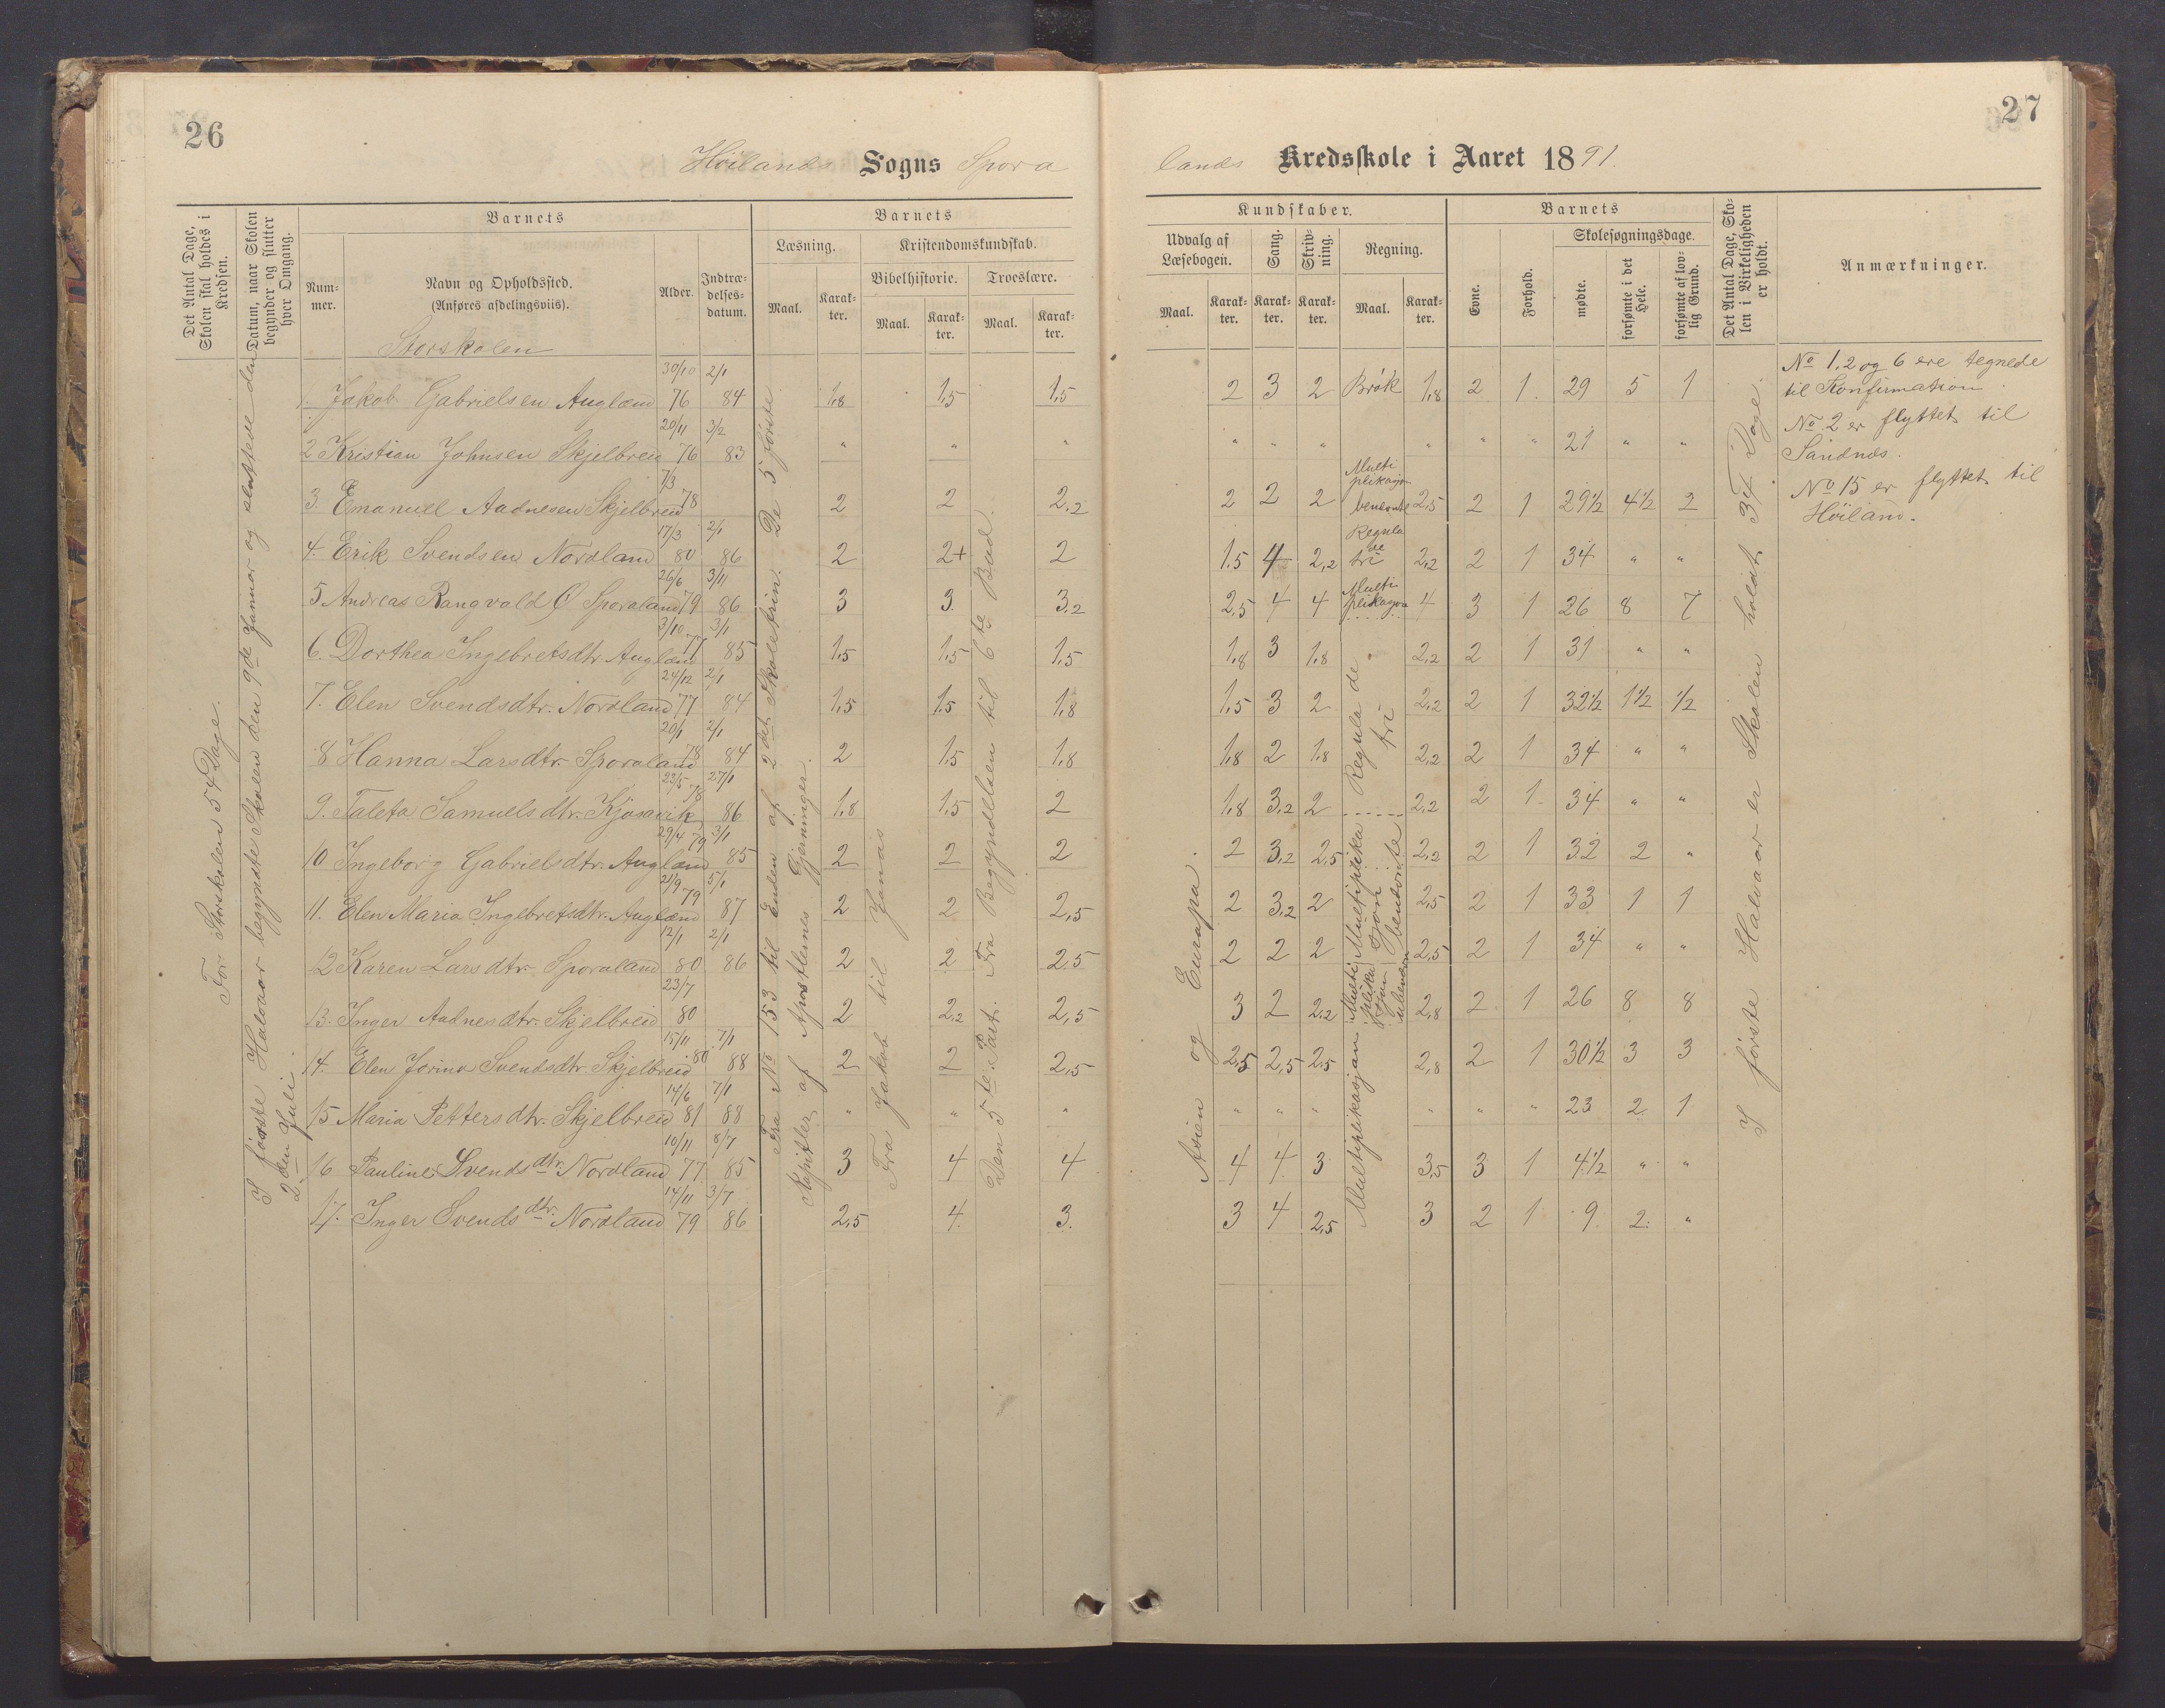 26
Høilands Sogns Spora
Det Antal Dage, Skolen skal holdes i Kredsen.
Datum, naar Skolen begynder og slutter hver Omgang.
Barnets
Barnets
Num-mer.
Navn og Opholdssted. (Anføres afdelingsviis).
Alder.
Indtræ-delses-datum.
Læsning.
Kristendomskundskab.
Bibelhistorie.
Troeslære.
Maal.
Karak-ter.
Maal.
Karak-ter.
Maal.
Karak-ter.
Storskolen
For Storskolen 54 Dage.
I første Halvaar begyndte Skolen den 9de Januar og sluttede den
2den Juli.
Fra No 153 til Enden af 2det Skoletrin. De 5 første
Kapitler af Apostlernes Gjerninger.
Fra Jakob til Jonas
Den 5te Part. Fra Begyndelsen til 6te Bud.
1. Jakob Gabrielsen Auglænd 30/10 76 2/1 84 1,8 1,5 1,5
2 Kristian Johnsen Skjelbreid 20/11 76 3/2 83 " " "
3. Emanuel Aadnesen Skjelbreid 7/3 78 2 2 2,2
4. Erik Svendsen Nordland 17/3 80 2/1 86 2 2+ 2
5 Andreas Rangvald O Sporaland 26/6 79 3/11 86 3 3. 3,2
6. Dorthea Ingebretsdtr. Auglænd 3/10 77 3/1 85 1,5 1,5 1,5
7. Elen Svendsdtr. Nordland 24/12 77 2/1 84 1,5 1,5 1,8
8 Hanna Larsdtr. Sporaland 20/1 78 2/1 84 2 1,5 1,8
9. Taleta Samuelsdtr. Kjosavik 23/5 78 27/1 86 1,8 1,5 2
10 Ingeborg Gabrielsdtr. Auglænd 29/4 79 3/1 85 2 2 2
11. Elen Maria Ingebretsdtr. Auglænd 21/9 79 5/1 87 2 2 2,5
12 Karen Larsdtr. Sporaland 12/1 80 2/1 86 2 2 2,5
13. Inger Aadnesdtr. Skjelbreid 23/7 80 2 2,2 2,5
14. Elen Jorina Svendsdtr. Skjelbreid 15/11 80 7/1 88 2 2 2,5
15 Maria Pettersdtr. Skjelbreid 14/6 81 7/1 88 " " "
16 Pauline Svendsdtr. Nordland 10/11 77 8/7 85 3 4 4
17. Inger Svendsdtr. Nordland 14/11 79 3/7 86 2,5 4. 3.
27
lands Kredsskole i Aaret 1891.
Kundskaber.
Barnets
Udvalg af Læsebogen.
Sang.
Skriv-ning.
Regning.
Evne.
Forhold.
Skolesøgningsdage.
Det Antal Dage, Sko-len i Virkeligheden er holdt.
Anmærkninger.
Maal.
Karak-ter.
Karak-ter.
Karak-ter.
Maal.
Karak-ter.
mødte.
forsømte i det Hele.
forsømte af lov-lig Grund.
Asien og Europa.
2 3 2 Brøk 1,8 2 1. 29 5 1
" " " " " " 21 " "
2 2 2 Multi plikasjon benevnte 2,5 2 1 29½ 4½ 2
1.5 4 2,2 Regula de tri 2,2 2 1 34 " "
2,5 4 4 Multi plikasjon 4 3 1 26 8 7
1,8 3 1,8 2,2 2 1 31 " "
1,5 3 2 Regula de tri 2,2 2 1 32½ 1½ ½
1,8 2 1,8 2,2 2 1 34 " "
1,8 3,2 2 2,2 2 1. 34 " "
2 3,2 2,5 Multiplika sjon benevnte 2,2 2 1 32 2 "
2 3,2 2 2,5 2 1 33 1 1
2 2 2 2,5 2 1 34 " "
3 2 2,2 Multi plika sjon ubenevn 2,8 2 1 26 8 8
2,5 2,5 2,5 Multiplikasjon 2,8 2 1 30½ 3 3
" " " " " " 23 2 1
4 4 3 3,5 3 1 4½ " "
3 4 2,5 3 2 1 9 2 "
I første Halvaar er Skolen holdt 34 Dage.
No 1, 2 og 6 ere tegnede
til Konfirmation.
No 2 er flyttet til
Sandnæs.
No 15 er flyttet til
Høiland.